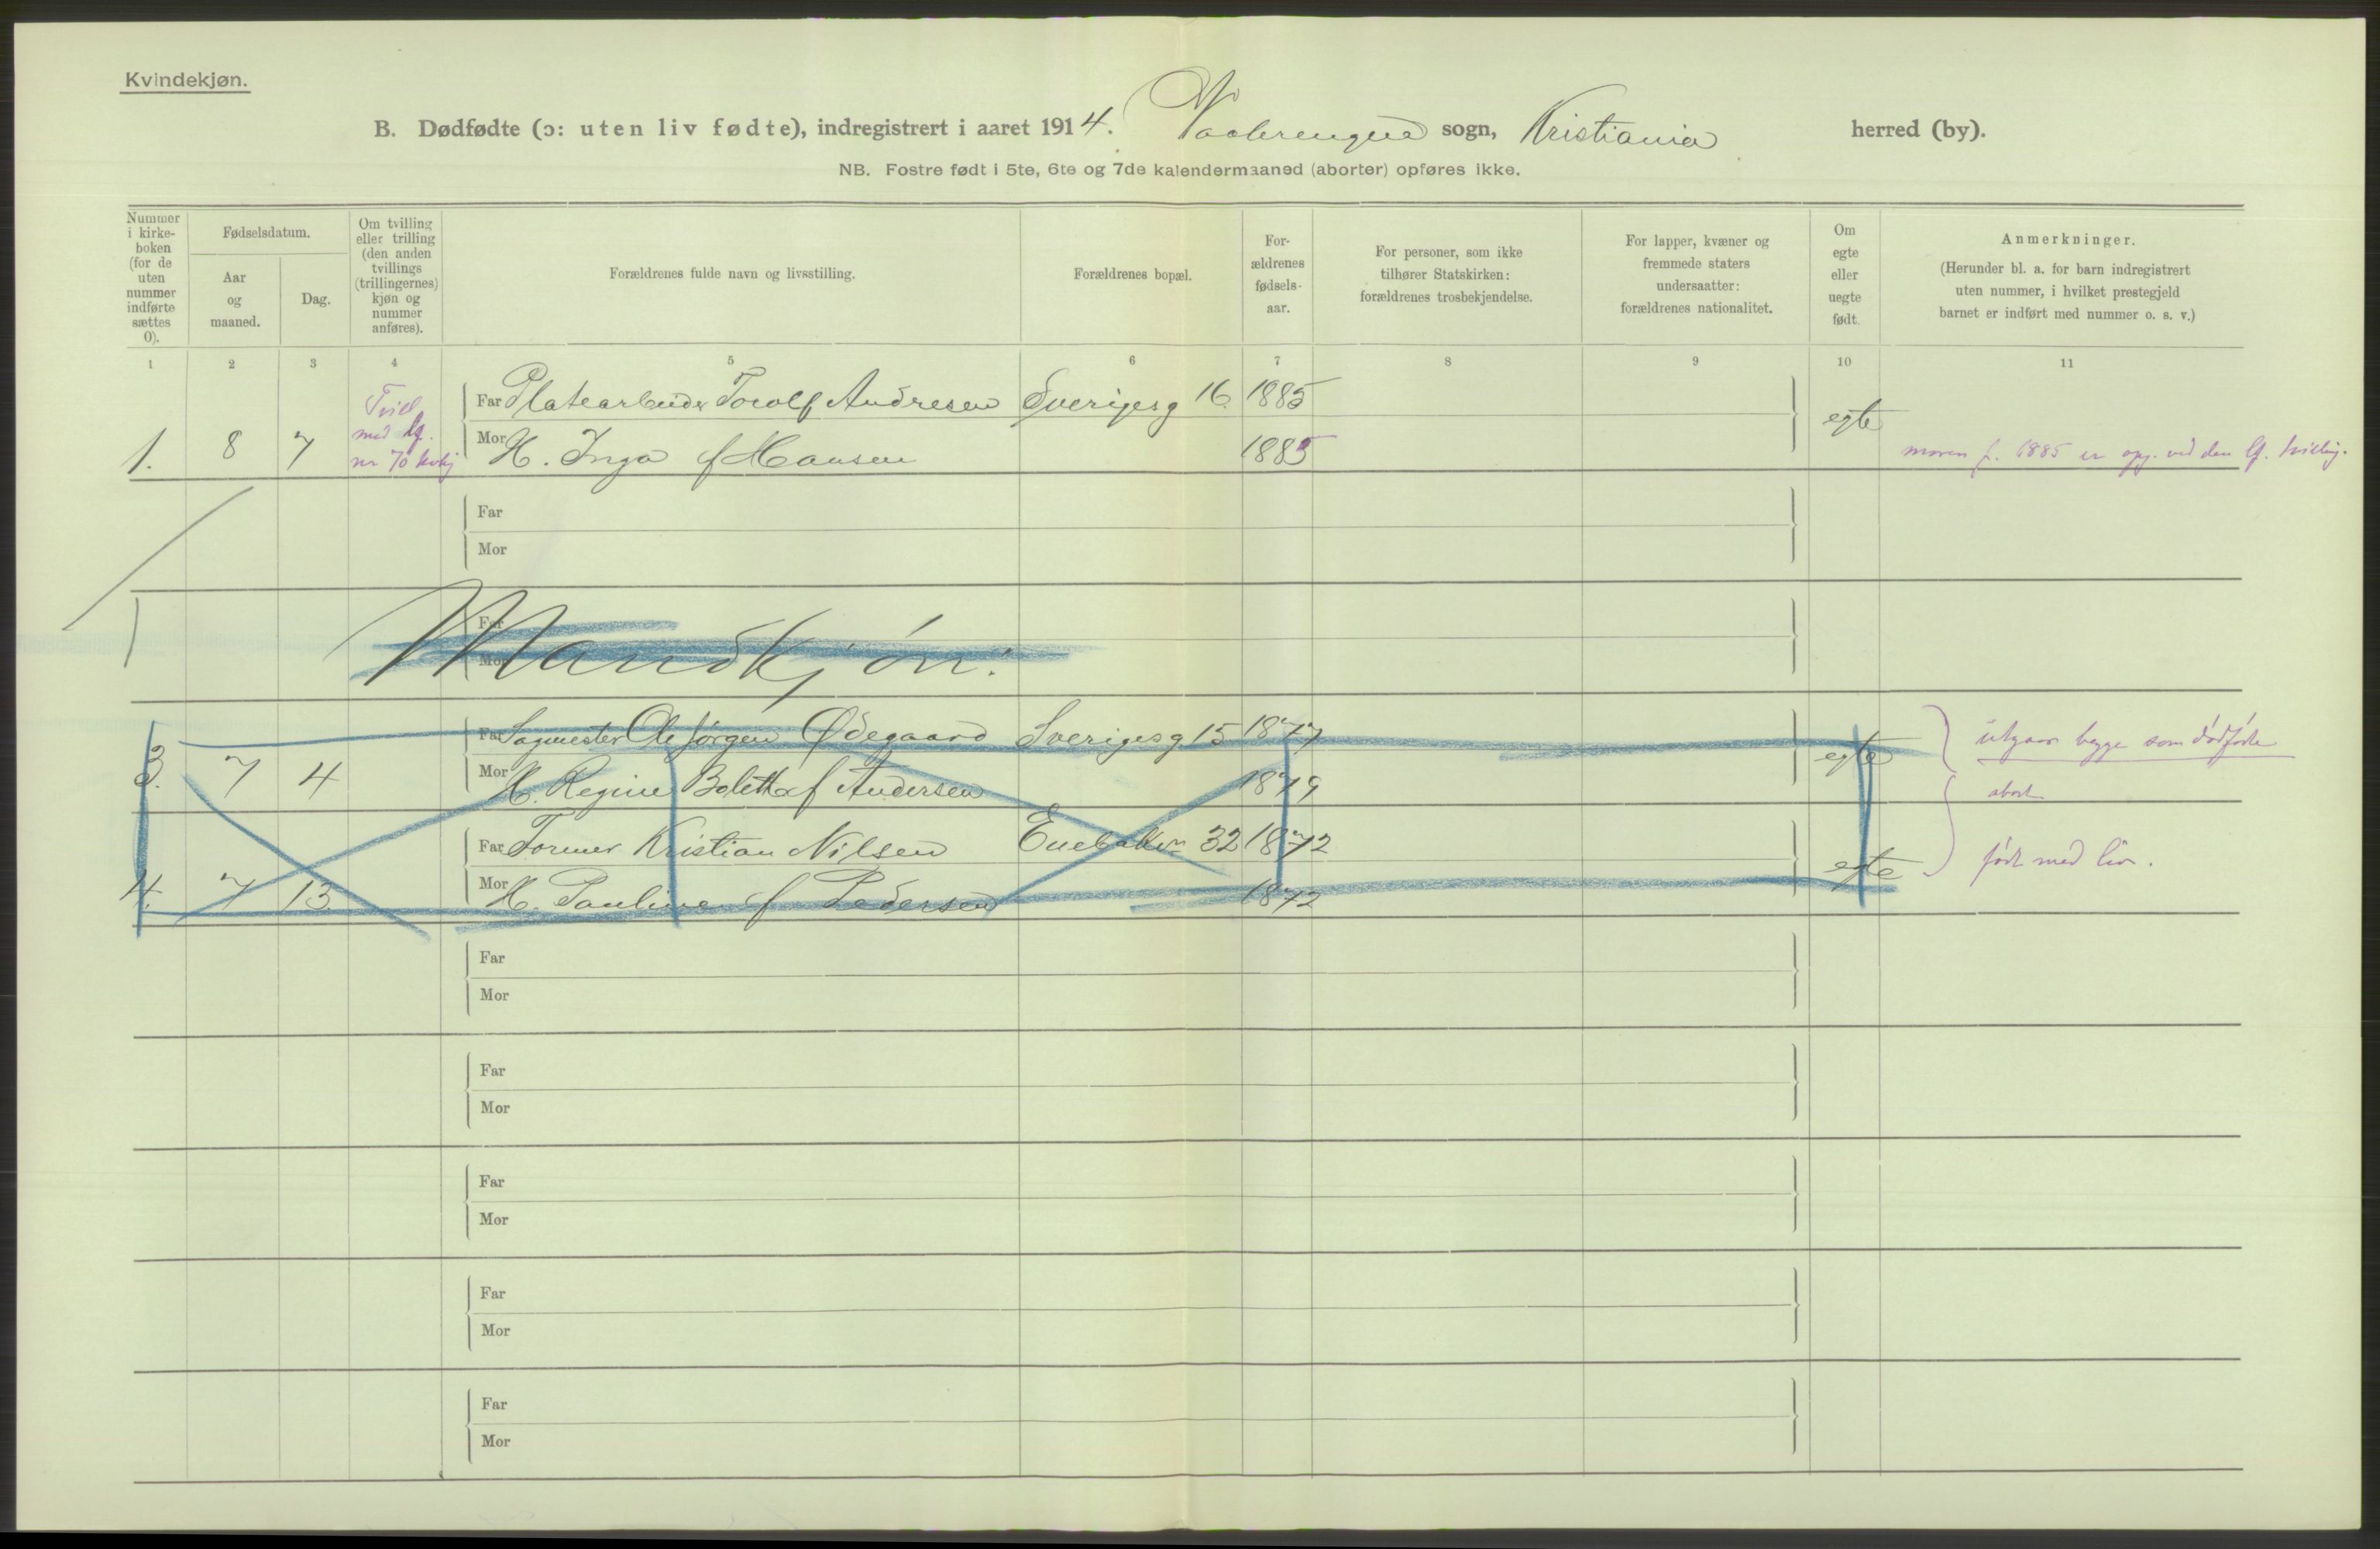 Kvindekjøn.
B. Dødfødte (ɔ: uten liv fødte), indregistrert i aaret 1914. Vaalerengens sogn, Kristiania herred (by).
NB. Fostre født i 5te, 6te og 7de kalendermaaned (aborter) opføres ikke.
Nummer i kirke-boken (for de uten nummer indførte sættes 0).
Fødselsdatum.
Aar og maaned.
Dag.
Om tvilling eller trilling (den anden tvillings (trillingernes) kjøn og nummer anføres).
Forældrenes fulde navn og livsstilling.
Forældrenes bopæl.
For-ældrenes fødsels-aar.
For personer, som ikke tilhører Statskirken: forældrenes trosbekjendelse.
For lapper, kvæner og fremmede staters undersaatter: forældrenes nationalitet.
Om egte eller uegte født.
Anmerkninger.
(Herunder bl. a. for barn indregistrert uten nummer, i hvilket prestegjeld barnet er indført med nummer o. s. v.)
1 2 3 4 5 6 7 8 9 10 11
Tvill. med lf. nr 70 kvkj
Far Platearbeider Torolf Andresen Sverigesg 16. 1885
1. 8 7 Mor H. Inga f Hansen 1885 egte moren f. 1885 er opg. ved den lf. tvilling.
Far
Mor
Far
Mor
Mandkjøn:
Far Sagmester Ole Jørgen Ødegaard Sverigesg 15 1877
3. 7 4 Mor H. Regine Bolette f Andersen 1879 egte
utgaar begge som dødfødte
abort
Far Former Kristian Nilsen Enebakkvn 32 1872
4. 7 13 Mor H. Pauline f Pedersen 1872 egte
født med liv.
Far
Mor
Far
Mor
Far
Mor
Far
Mor
Far
Mor